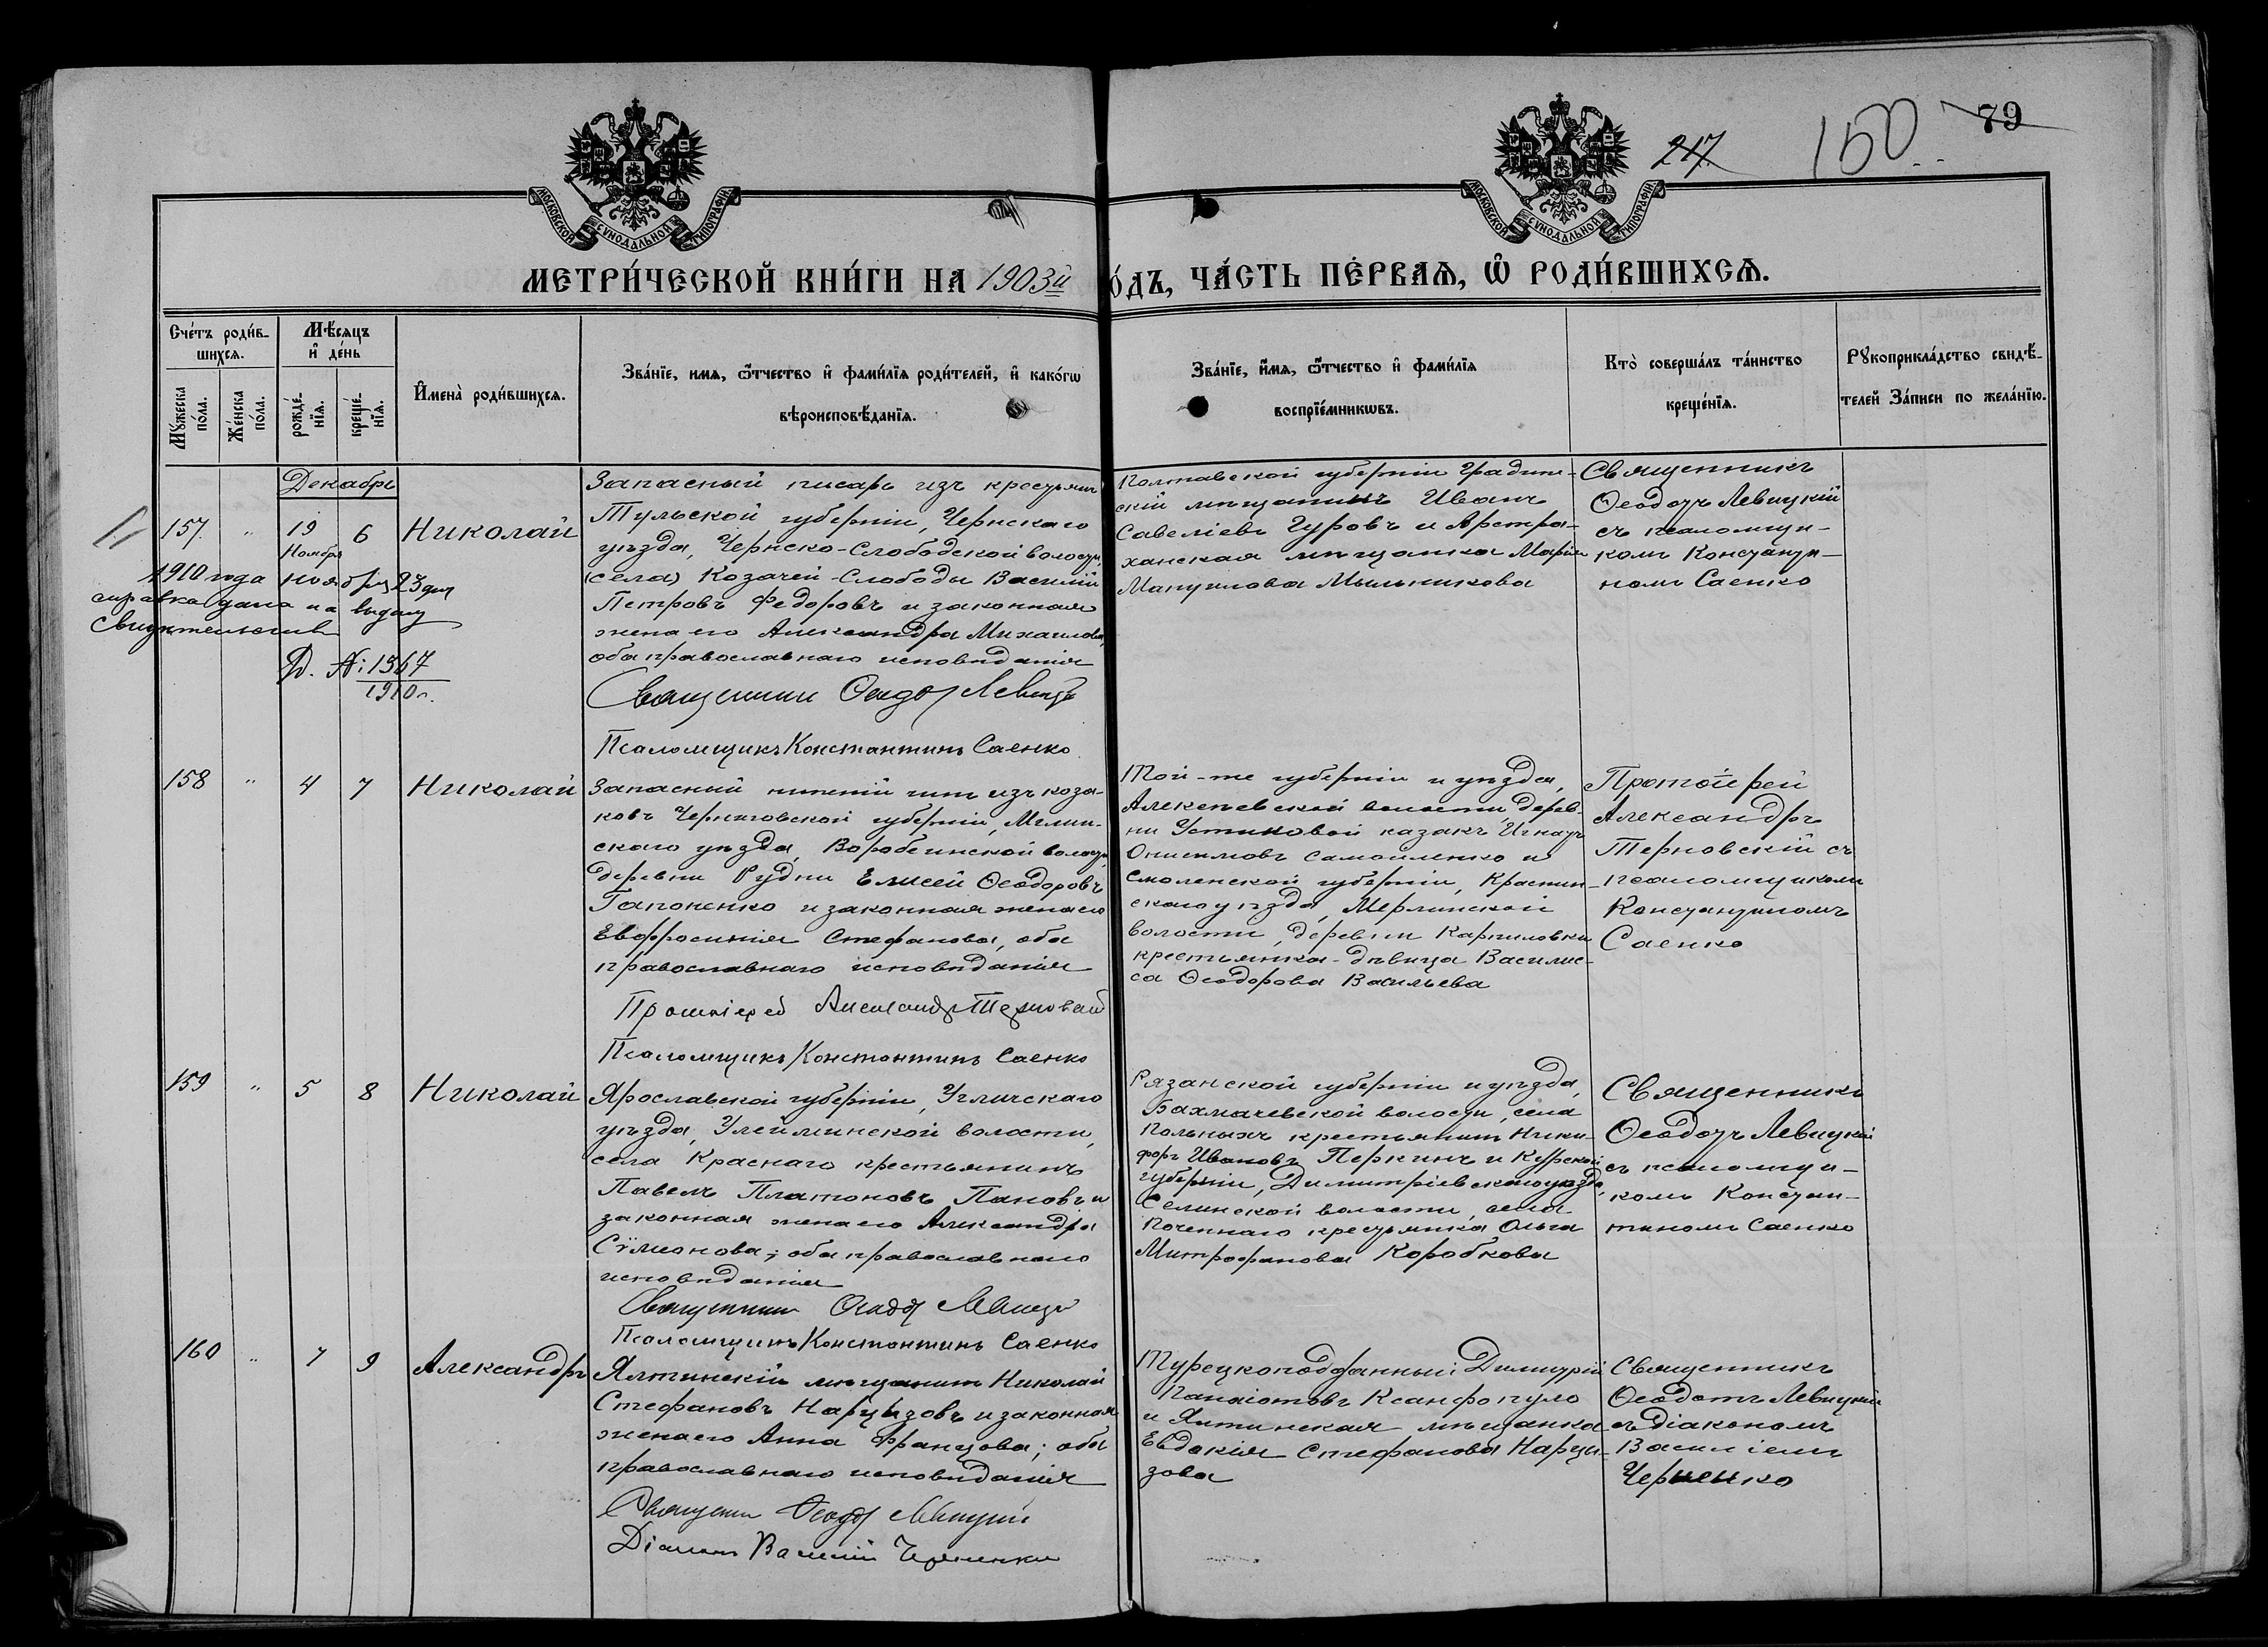 217
150
79
МОСКОВСКОЙ СѴНОДАЛЬНОЙ ТИПОГРАФІИ
МОСКОВСКОЙ СѴНОДАЛЬНОЙ ТИПОГРАФІИ
МЕТРИ́ЧЕСКОЙ КНИ́ГИ НА 1903й
О́ДЪ, ЧА́СТЬ ПЕ́РВАѦ, Ѡ҆ РОДИ́ВШИХСѦ.
Сче́тъ роди́в-
шихсѧ.
Мꙋ́жеска по́ла.
Же́нска по́ла.
Мѣ́сѧцъ
и҆ де́нь
рожде́-
нїѧ.
креще́-
нїѧ.
И҆мена̀ роди́вшихсѧ.
Зва́нїе, имѧ, ѻ҆́тчество и҆ фами́лїѧ роди́телей, и҆ како́гѡ
вѣроисповѣ́данїѧ.
Зва́нїе, и҆́мѧ, ѻ҆́тчество и҆ фами́лїѧ
воспрїе́мникѡвъ.
Кто̀ соверша́лъ та́инство
креще́нїѧ.
Рꙋкоприкла́дство свидѣ́-
телей За́писи по жела́нїю.
Декабрь
157. " 19 6 Николай
Ноября
1910 года ноября 23 дня
справка дана на выдачу
свидѣтельства
Д. №: 1567
1910 г.
Запасный писарь изъ крестьянъ
Тульской губерніи, Чернскаго
уѣзда, Чернско-Слободской волости,
(села) Козачей-Слободы Василій
Петровъ Федоровъ и законная
жена его Александра Михаилова,
оба православнаго исповѣданія
Священникъ Ѳеодотъ Левицкій
Псаломщикъ Константинъ Саенко
Полтавской губерніи Градиж-
скій мѣщанинъ Иванъ
Савеліевъ Гуровъ и Астра-
ханская мѣщанка Марія
Мануилова Мыльникова
Священникъ
Ѳеодотъ Левицкій
съ псаломщи-
комъ Константи-
номъ Саенко
158 " 4 7 Николай
Запасный нижній чинъ изъ коза-
ковъ Черниговской губерніи, Мглин-
скаго уѣзда, Воробеинской волости,
деревни Рудни Елисей Ѳеодоровъ
Гапоненко и законная жена его
Евфросинія Стефанова, оба
православнаго исповѣданія
Протоіерей Александръ Терновскій
Псаломщикъ Константинъ Саенко
Той-же губерніи и уѣзда,
Алексѣевской волости, дерев-
ни Устиновой казакъ Игнатъ
Онисимовъ Самойленко и
Смоленской губерніи, Краснин-
скаго уѣзда, Мерлинской
волости, деревни Карпиловки
крестьянка-дѣвица Василис-
са Ѳеодорова Васильева
Протоіерей
Александръ
Терновскій съ
псаломщикомъ
Константиномъ
Саенко
159 " 5 8 Николай
Ярославской губерніи, Угличскаго
уѣзда, Улейминской волости,
села Краснаго крестьянинъ
Павелъ Платоновъ Пановъ и
законная жена его Александра
Сѵмеонова; оба православнаго
исповѣданія
Священникъ Ѳеодотъ Левицкій
Псаломщикъ Константинъ Саенко
Рязанской губерніи и уѣзда,
Бахмачевской волости, села
Польныхъ крестьянинъ Ники-
форъ Ивановъ Перкинъ и Курской
губерніи, Димитріевскаго уѣзда,
Селинской волости, села
Поченнаго крестьянка Ольга
Митрофанова Коробкова
Священникъ
Ѳеодотъ Левицкій
съ псаломщи-
комъ Констан-
тиномъ Саенко
160 " 7 9 Александръ
Ялтинскій мѣщанинъ Николай
Стефановъ Нарцизовъ и законная
жена его Анна Францова; оба
православнаго исповѣданія
Священникъ Ѳеодотъ Левицкій
Діаконъ Василій Черненко
Турецкоподданный Димитрій
Панаіотовъ Ксанфопуло
и Ялтинская мѣщанка
Евдокія Стефанова Нарци-
зова
Священникъ
Ѳеодотъ Левицкій
съ діакономъ
Василіемъ
Черненко